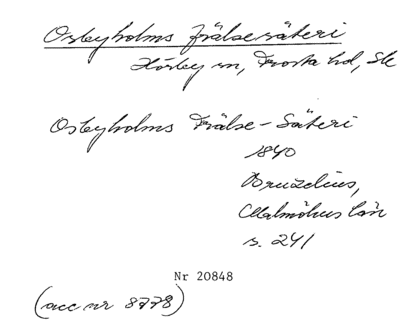 Osbyholms frälsesäteri
Hörby sn, Frosta hd, Sk
Osbyholms Frälse-Säteri
1840
Bruzelius,
Malmöhus län
s. 241
Nr 20848
(acc nr 8778)